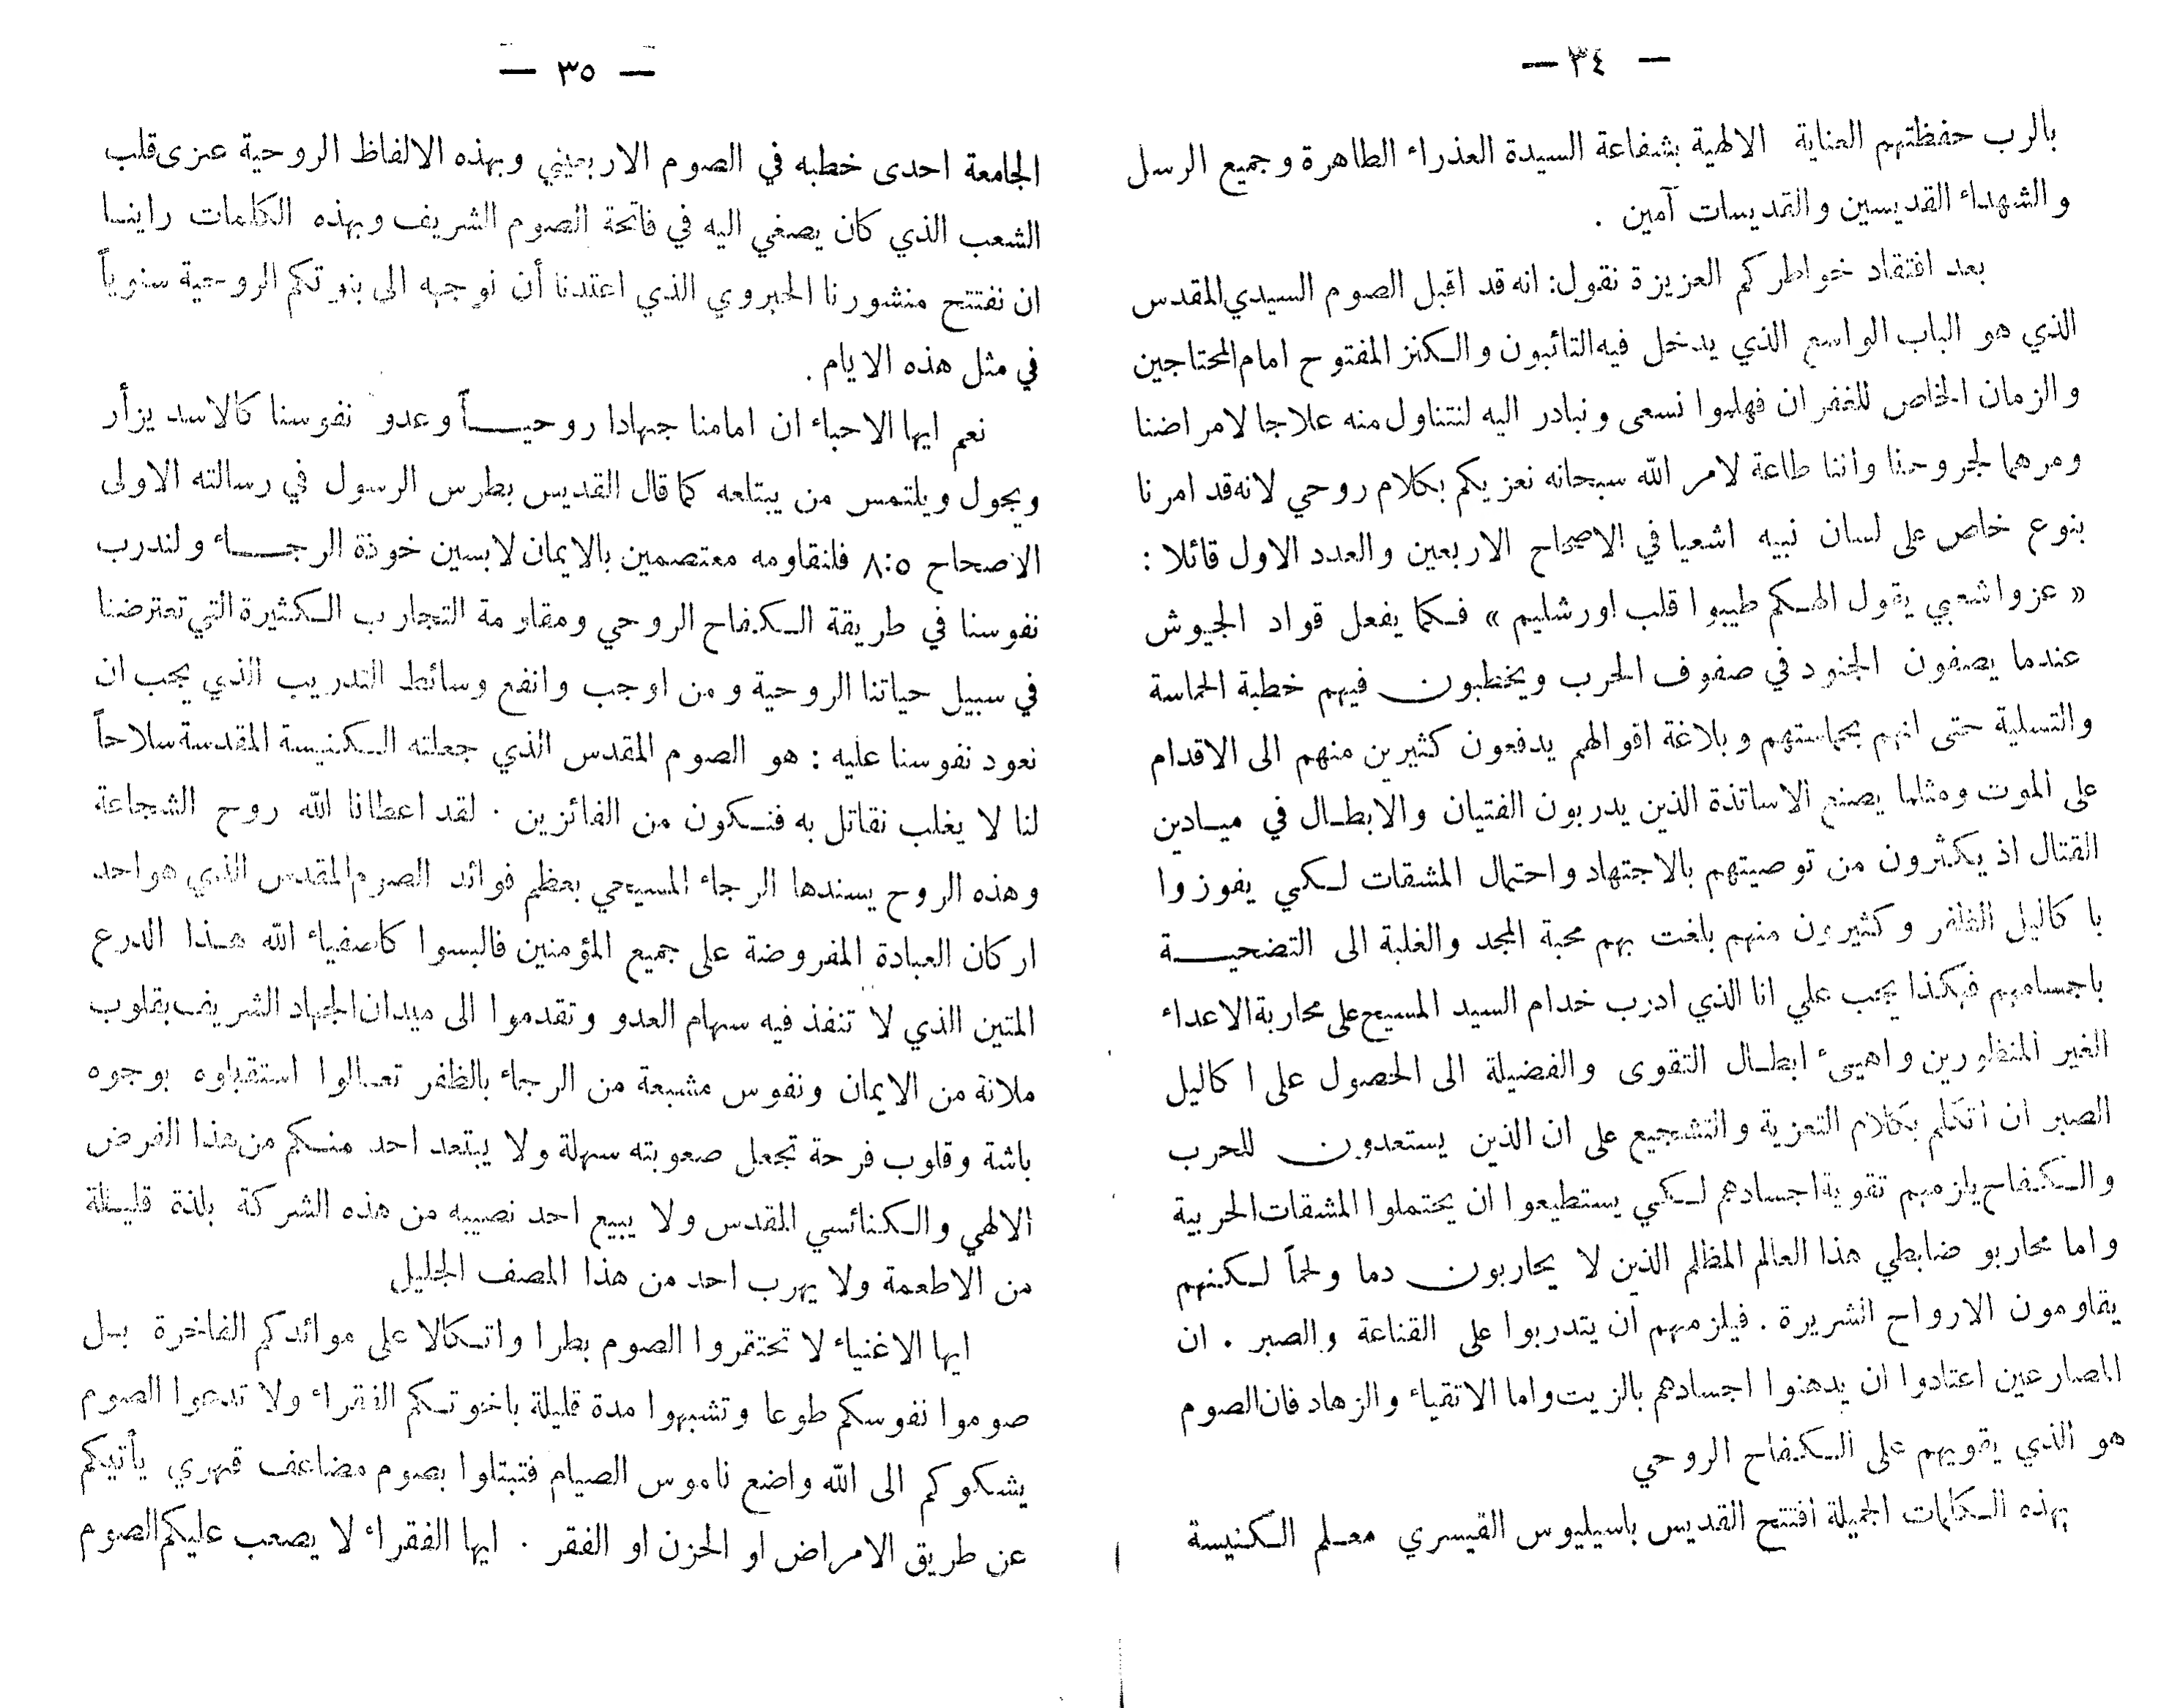 — ٣٤ —
بالرب حفظتهم العناية الالهية بشفاعة السيدة العذراء الطاهرة وجميع الرسل
والشهداء القديسين والقديسات آمين .
بعد افتقاد خواطركم العزيزة نقول: انه قد اقبل الصوم السيدي المقدس
الذي هو الباب الواسع الذي يدخل فيه التائبون والكنز المفتوح امام المحتاجين
والزمان الخاص للغفران فهلموا نسعى ونبادر اليه لنتناول منه علاجا لامراضنا
ومرهما لجروحنا واننا طاعة لامر الله سبحانه نعزيكم بكلام روحي لانه قد امرنا
بنوع خاص على لسان نبيه اشعيا في الاصحاح الاربعين والعدد الاول قائلا :
« عزوا شعبي يقول الهكم طيبوا قلب اورشليم » فكما يفعل قواد الجيوش
عندما يصفون الجنود في صفوف الحرب ويخطبون فيهم خطبة الحماسة
والتسلية حتى انهم بحماستهم وبلاغة اقوالهم يدفعون كثيرين منهم الى الاقدام
على الموت ومثلما يصنع الاساتذة الذين يدربون الفتيان والابطال في ميادين
القتال اذ يكثرون من توصيتهم بالاجتهاد واحتمال المشقات لكي يفوزوا
باكاليل الظفر وكثيرون منهم بلغت بهم محبة المجد والغلبة الى التضحية
باجسامهم فهكذا يجب علي انا الذي ادرب خدام السيد المسيح على محاربة الاعداء
الغير المنظورين واهيئ ابطال التقوى والفضيلة الى الحصول على اكاليل
الصبر ان اتكلم بكلام التعزية والتشجيع على ان الذين يستعدون للحرب
والكفاح يلزمهم تقوية اجسادهم لكي يستطيعوا ان يحتملوا المشقات الحربية
واما محاربو ضابطي هذا العالم المظلم الذين لا يحاربون دما ولحماً لكنهم
يقاومون الارواح الشريرة . فيلزمهم ان يتدربوا على القناعة والصبر . ان
المصارعين اعتادوا ان يدهنوا اجسادهم بالزيت واما الاتقياء والزهاد فان الصوم
هو الذي يقويهم على الكفاح الروحي
بهذه الكلمات الجميلة افتتح القديس باسيليوس القيسري معلم الكنيسة
— ٣٥ —
الجامعة احدى خطبه في الصوم الاربعيني وبهذه الالفاظ الروحية عزى قلب
الشعب الذي كان يصغي اليه في فاتحة الصوم الشريف وبهذه الكلمات راينا
ان نفتتح منشورنا الحبروي الذي اعتدنا أن نوجهه الى بنوتكم الروحية سنوياً
في مثل هذه الايام .
نعم ايها الاحباء ان امامنا جهادا روحياً وعدو نفوسنا كالاسد يزأر
ويجول ويلتمس من يبتلعه كما قال القديس بطرس الرسول في رسالته الاولى
الاصحاح ٨:٥ فلنقاومه معتصمين بالايمان لابسين خوذة الرجاء ولندرب
نفوسنا في طريقة الكفاح الروحي ومقاومة التجارب الكثيرة التي تعترضنا
في سبيل حياتنا الروحية ومن اوجب وانفع وسائط التدريب الذي يجب ان
نعود نفوسنا عليه : هو الصوم المقدس الذي جعلته الكنيسة المقدسة سلاحاً
لنا لا يغلب نقاتل به فنكون من الفائزين . لقد اعطانا الله روح الشجاعة
وهذه الروح يسندها الرجاء المسيحي بعظم فوائد الصوم المقدس الذي هو احد
اركان العبادة المفروضة على جميع المؤمنين فالبسوا كاصفياء الله هذا الدرع
المتين الذي لا تنفذ فيه سهام العدو وتقدموا الى ميدان الجهاد الشريف بقلوب
ملانة من الايمان ونفوس مشبعة من الرجاء بالظفر تعالوا استقبلوه بوجوه
باشة وقلوب فرحة تجعل صعوبته سهلة ولا يبتعد احد منكم من هذا الفرض
الالهي والكنائسي المقدس ولا يبيع احد نصيبه من هذه الشركة بلذة قليلة
من الاطعمة ولا يهرب احد من هذا المصف الجليل
ايها الاغنياء لا تحتقروا الصوم بطرا واتكالا على موائدكم الفاخرة بل
صوموا نفوسكم طوعا وتشبهوا مدة قليلة باخوتكم الفقراء ولا تدعوا الصوم
يشكوكم الى الله واضع ناموس الصيام فتبتلوا بصوم مضاعف قهري يأتيكم
عن طريق الامراض او الحزن او الفقر . ايها الفقراء لا يصعب عليكم الصوم